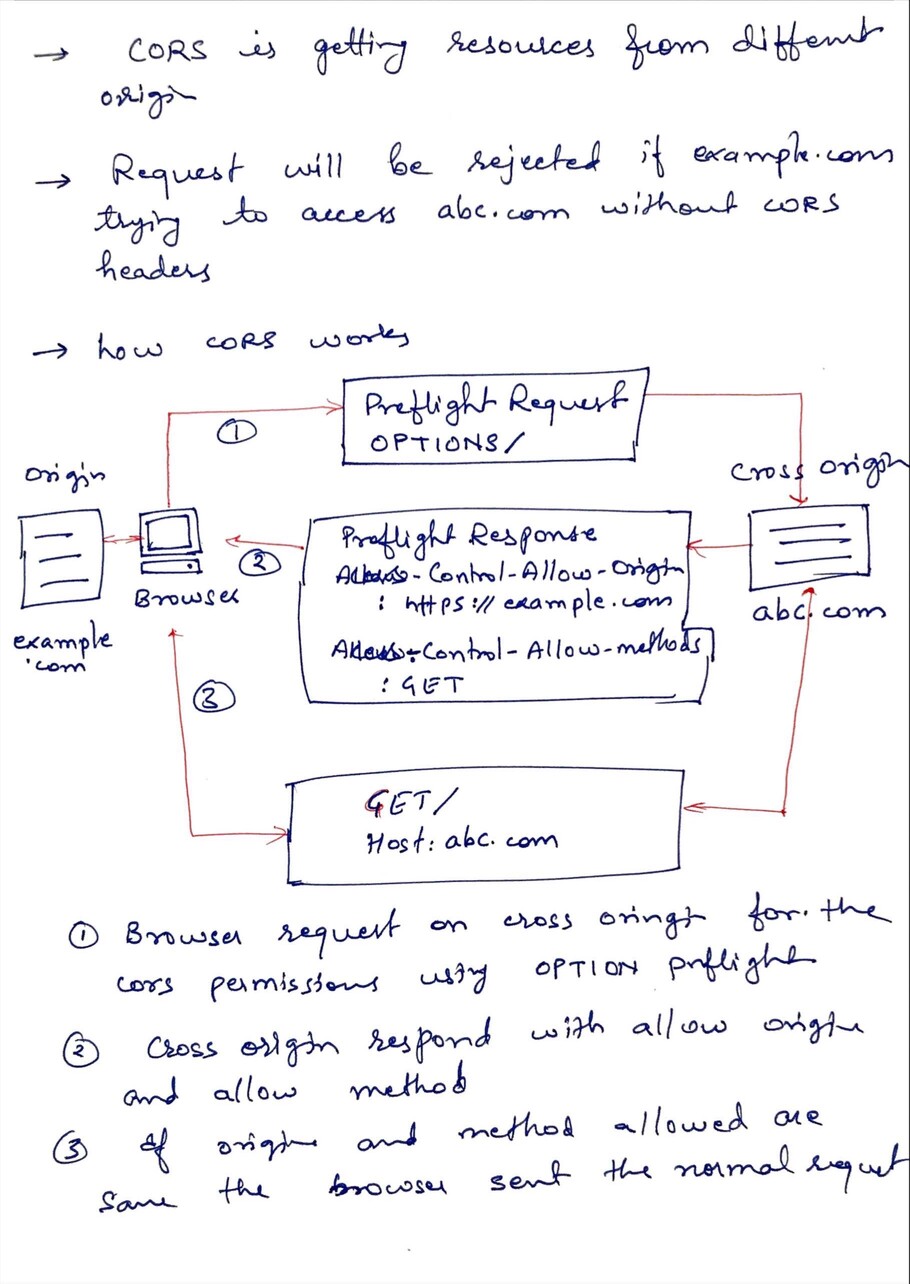 → CORS is getting resources from different
origin
→ Request will be rejected if example.com
trying to access abc.com without CORS
headers
→ how CORS works
Preflight Request
OPTIONS/
①
origin
cross origin
Preflight Response
Access-Control-Allow-Origin
: https://example.com
Access-Control-Allow-methods
: GET
②
Browser
abc.com
example
.com
③
GET/
Host: abc.com
① Browser request on cross oringi for. the
cors permissions using OPTION preflight
② Cross origin respond with allow origin
and allow method
③ If origin and method allowed are
same the browser sent the normal request